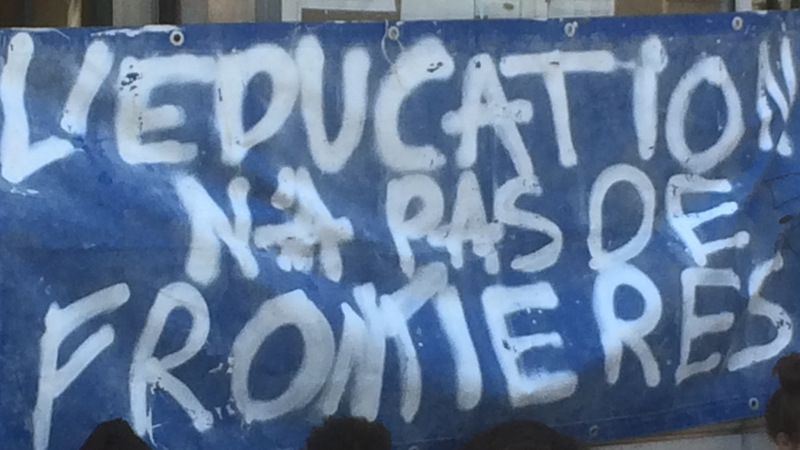 L'EDUCATION
NA PAS DE
FRONTIERES